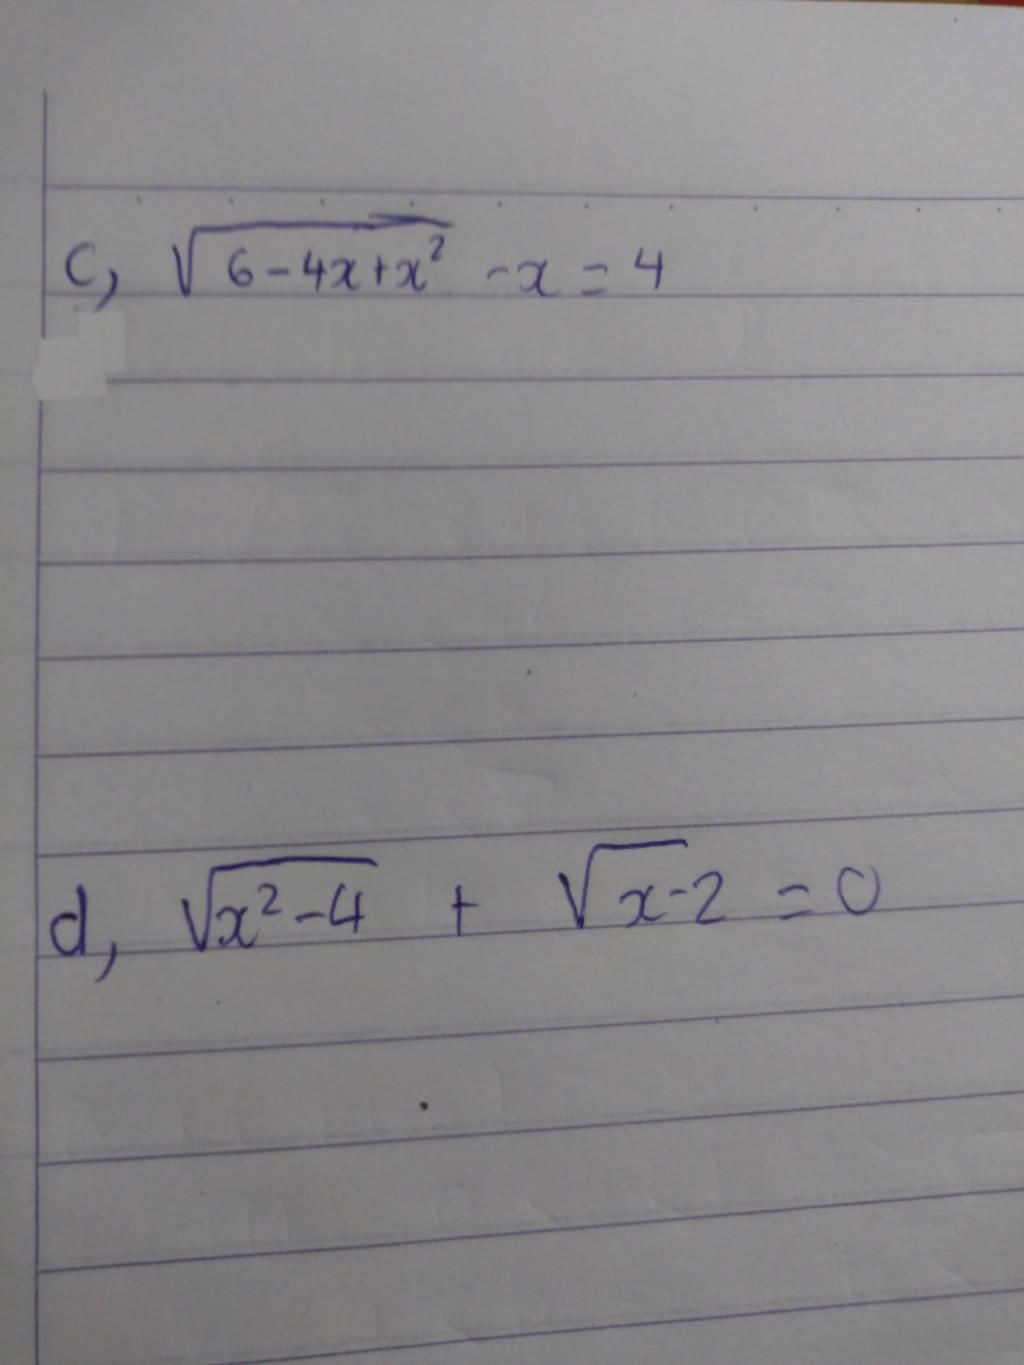 c, √(6-4x+x²) -x = 4
d, √(x²-4) + √(x-2) = 0